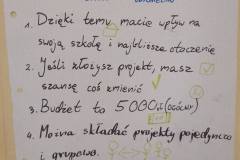 1. Dzięki temu macie wpływ na
swoją szkołę i najbliższe otoczenie
2. Jeśli złożysz projekt, masz
szansę coś zmienić
3. Budżet to 5000zł (ogółem)
4. Można składać projekty pojedynczo
i grupowo